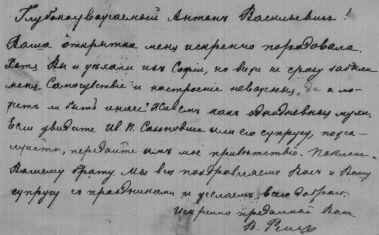 Глубокоуважаемый Антонъ Васильевичъ!
Ваша открытка меня искренно порадовала.
Хотя Вы и уѣхали изъ Софіи, но видно не сразу забыли
меня. Самочувствіе и настроеніе неважныя, да и мо-
жетъ ли быть иначе? Живемъ какъ однодневныя мухи.
Если увидите Ив. П. или его супругу, пожа-
луйста, передайте имъ мое привѣтствіе. Поклонъ
Вашему брату. Мы все поздравляемъ Васъ и Вашу
супругу съ праздниками и желаемъ всего добраго.
Искренно преданный Вамъ